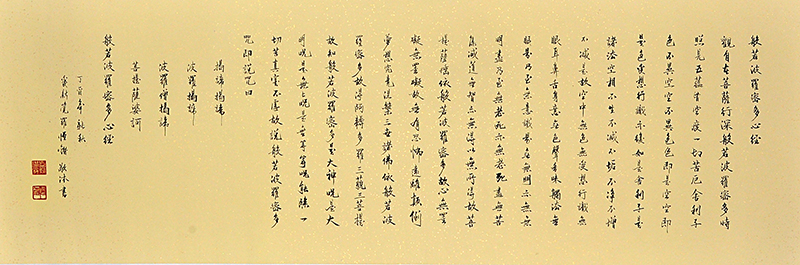 般若波羅密多心經
觀自在菩薩行深般若波羅密多時
照見五蘊皆空度一切苦厄舍利子
色不異空空不異色色即是空空即
是色受想行識亦復如是舍利子是
諸法空相不生不滅不垢不淨不增
不減是故空中無色無受想行識無
眼耳鼻舌身意無色聲香味觸法無
眼界乃至無意識界無無明亦無無
明盡乃至無老死亦無老死盡無苦
集滅道無智亦無得以無所得故菩
提薩埵依般若波羅密多故心無罣
礙無罣礙故無有恐怖遠離顛倒
夢想究竟涅槃三世諸佛依般若波
羅密多故得阿耨多羅三藐三菩提
故知般若波羅密多是大神咒是大
明咒是無上咒是無等等咒能除一
切苦真實不虛故說般若波羅密多
咒即說咒曰
揭諦揭諦
波羅揭諦
波羅僧揭諦
菩提薩婆訶
般若波羅密多心經
丁酉年初秋
愛新覺羅 書